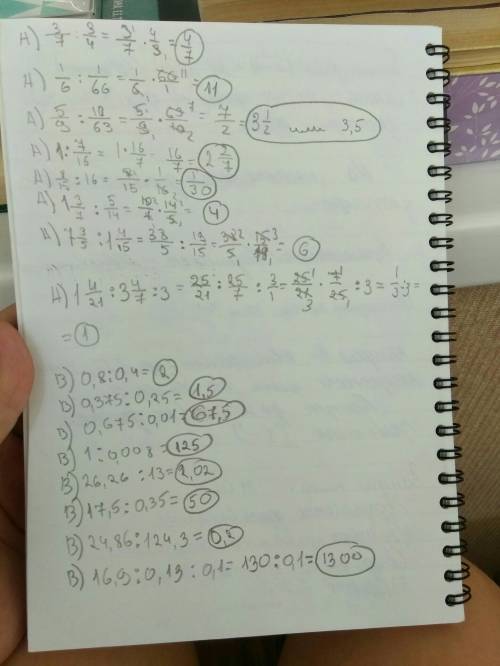 А) 3/7 : 3/4 = 3/7 · 4/3 = 4/7
А) 1/6 : 1/66 = 1/6 · 66/1 = 11
А) 5/9 : 10/63 = 5/9 · 63/10 = 7/2 = 3 1/2 или 3,5
А) 1 : 7/16 = 1 · 16/7 = 16/7 = 2 2/7
: 16 = 8/15 · 1/16 = 1/30
А) 1 3/7 : 5/14 = 10/7 · 14/5 = 4
А) 7 3/5 : 1 4/15 = 38/5 : 19/15 = 38/5 · 15/19 = 6
А) 1 4/21 : 3 4/7 : 3 = 25/21 : 25/7 : 3/1 = 25/21 · 7/25 : 3 = 1/3 : 3 =
= 1
В) 0,8 : 0,4 = 2
В) 0,375 : 0,25 = 1,5
В) 0,675 : 0,01 = 67,5
В) 1 : 0,008 = 125
В) 26,26 : 13 = 2,02
В) 17,5 : 0,35 = 50
В) 24,86 : 124,3 = 0,2
В) 16,9 : 0,13 : 0,1 = 130 : 0,1 = 1300